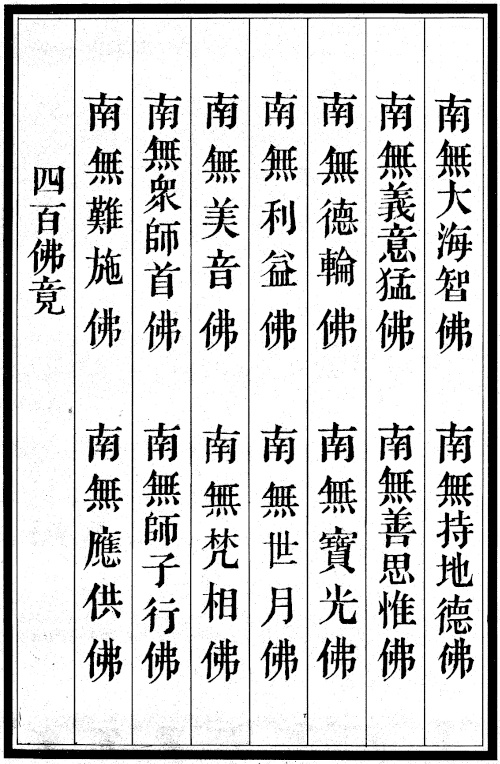 南無大海智佛　南無持地德佛
南無義意猛佛　南無善思惟佛
南無德輪佛　南無寶光佛
南無利益佛　南無世月佛
南無美音佛　南無梵相佛
南無眾師首佛　南無師子行佛
南無難施佛　南無應供佛
四百佛竟